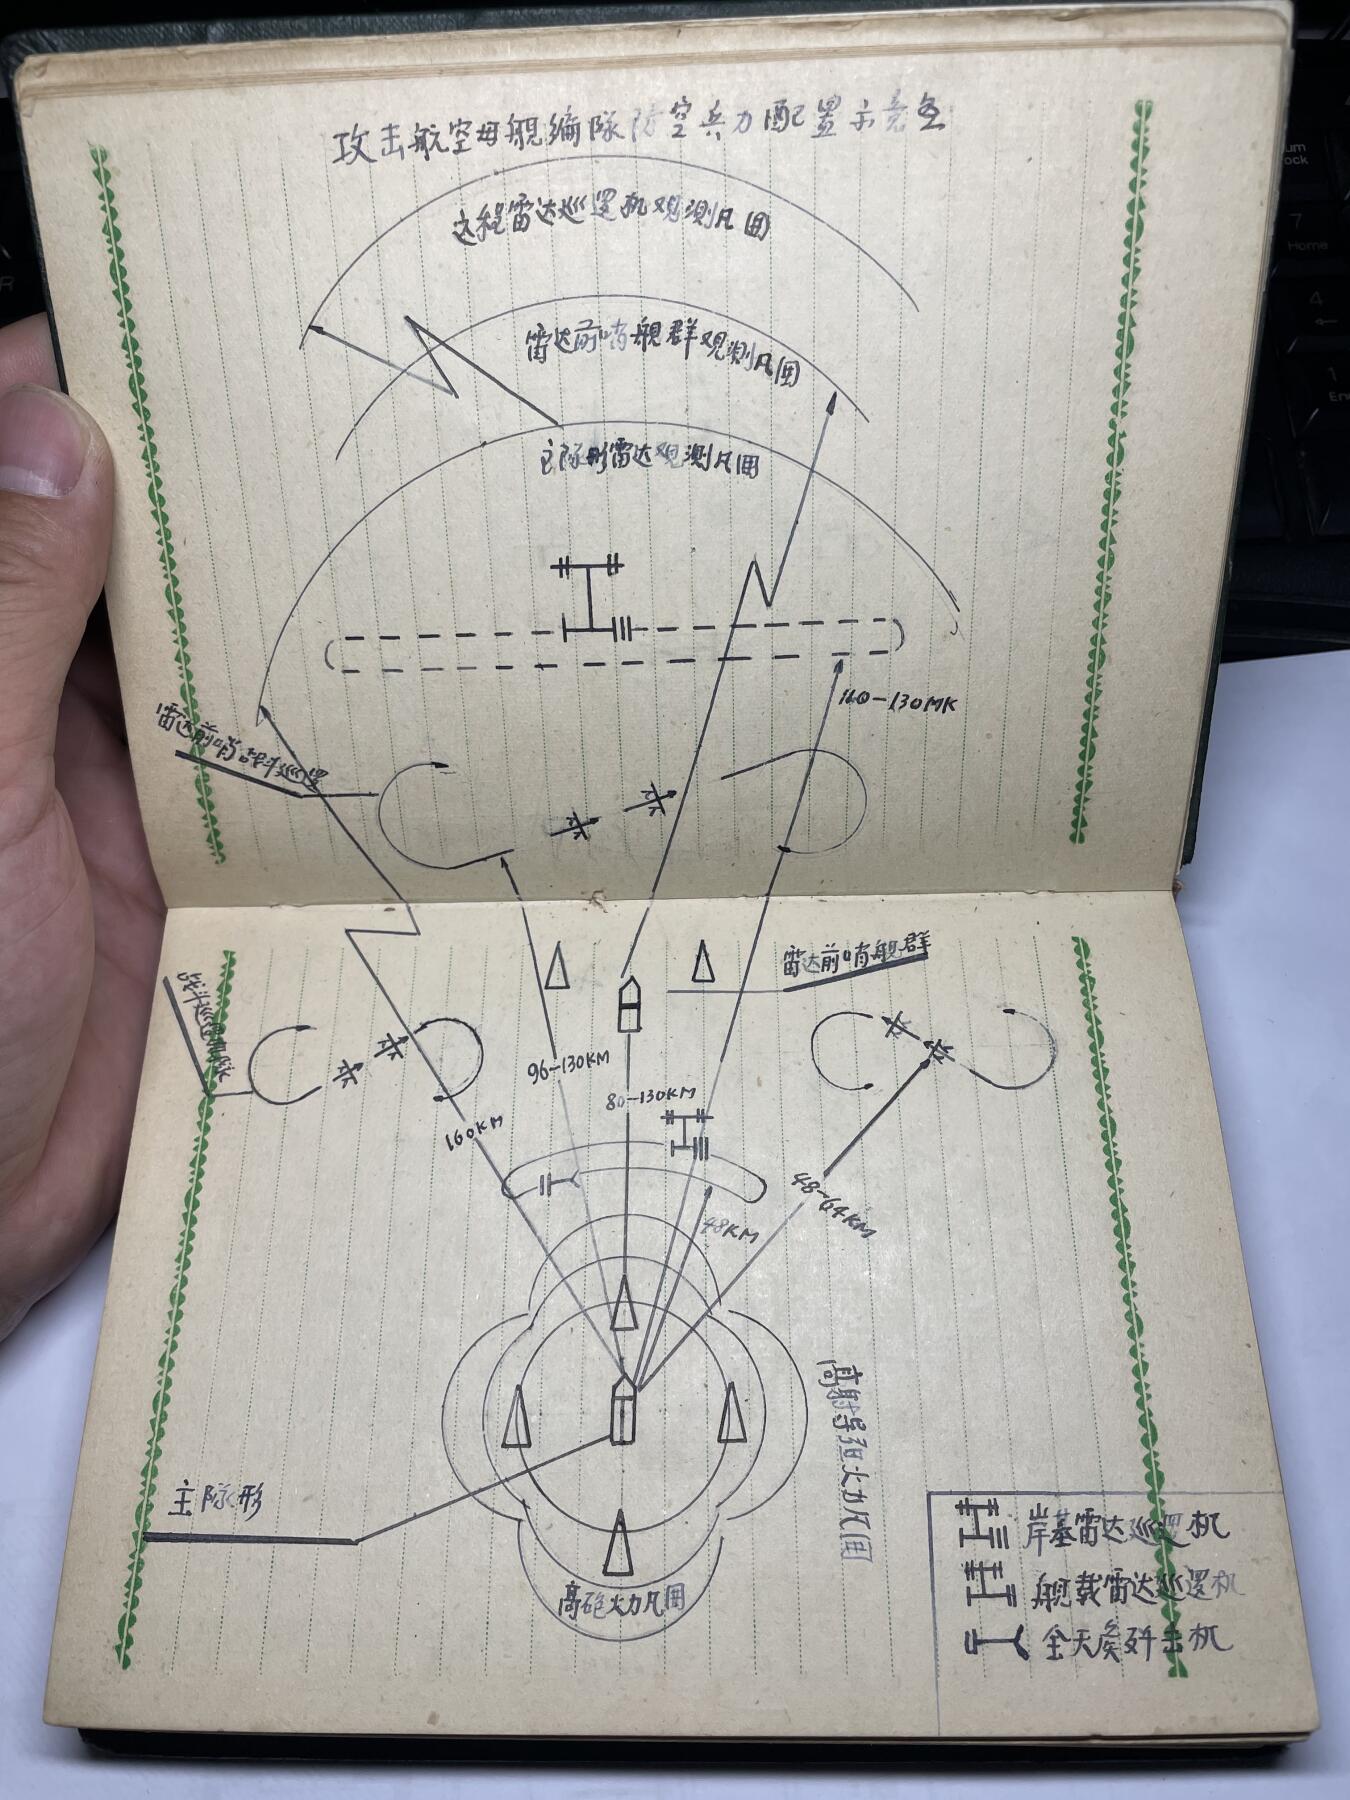 攻击航空母舰编队防空兵力配置示意图
远程雷达巡逻机观测凡围
雷达前哨舰群观测凡围
主队形雷达观测凡围
110-130MK
雷达前哨战斗巡逻
雷达前哨舰群
战斗巡逻
96-130KM
80-130KM
160KM
48-64KM
48KM
高射导弹火力凡围
主队形
高砲火力凡围
岸基雷达巡逻机
舰载雷达巡逻机
全天候歼击机